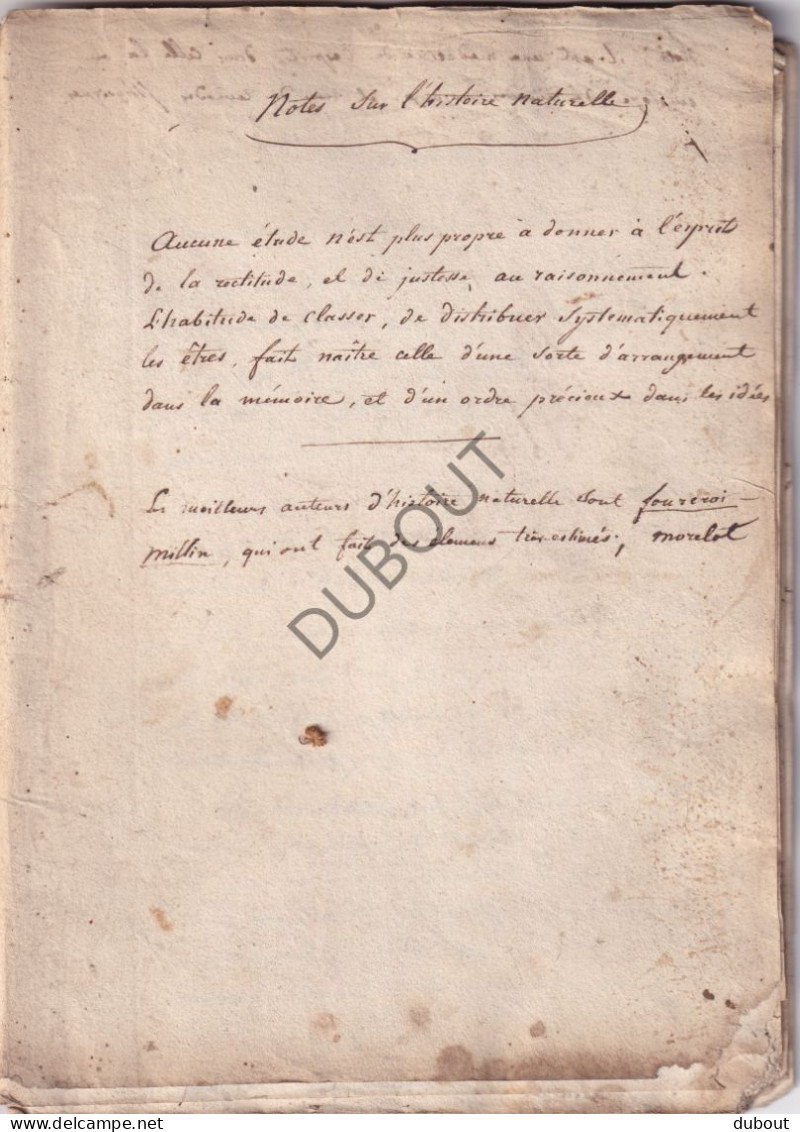 Notes sur l'histoire naturelle
Aucune étude n'est plus propre à donner à l'esprit
de la rectitude, et de justesse, au raisonnement.
L'habitude de classer, de distribuer systematiquement
les êtres, fait naître celle d'une sorte d'arrangement
dans la mémoire, et d'un ordre précieux dans les idées
Les meilleurs auteurs d'histoire naturelle sont fourcroi -
millin, qui ont fait des elemens très estimés; morelot
DUBOUT
delcampe.net
dubout